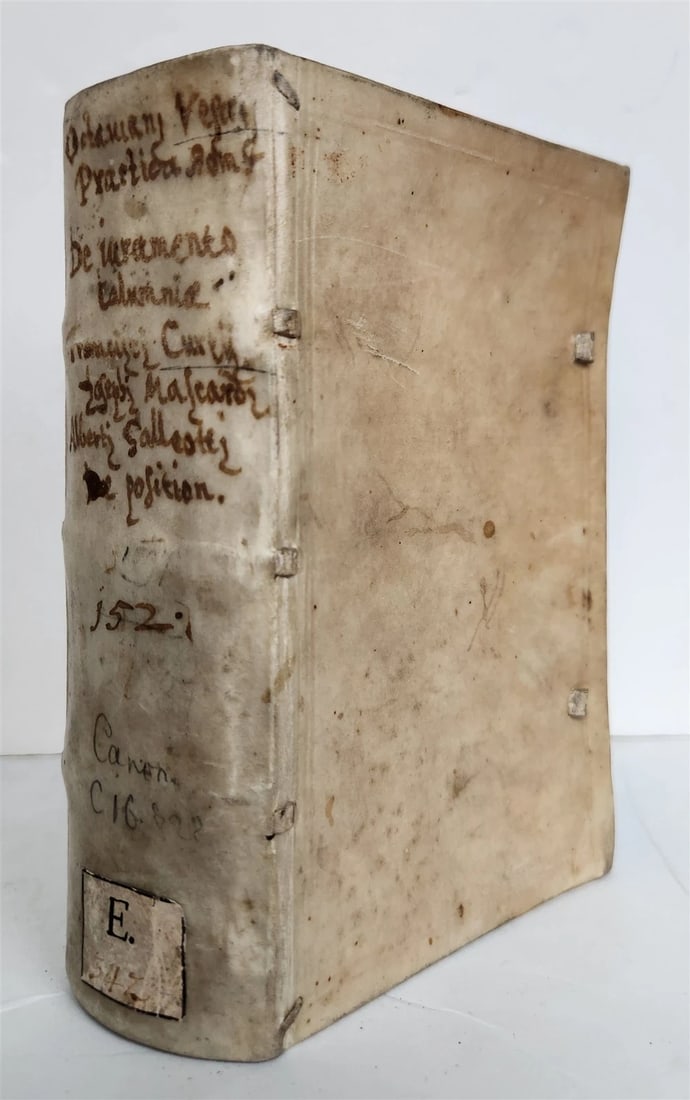 Octaviani Vestri
Practica Rom
De iuramento
calumniæ
Francisci Curtij
Josephi Mascardi
Alberti Galleotti
De position.
152
Canon.
C 16.
E.